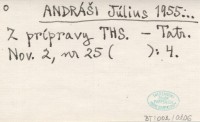 ANDRÁŠI Július 1955...
Z prípravy THS. – Tatr.
Nov. 2, nr 25 (        ): 4.